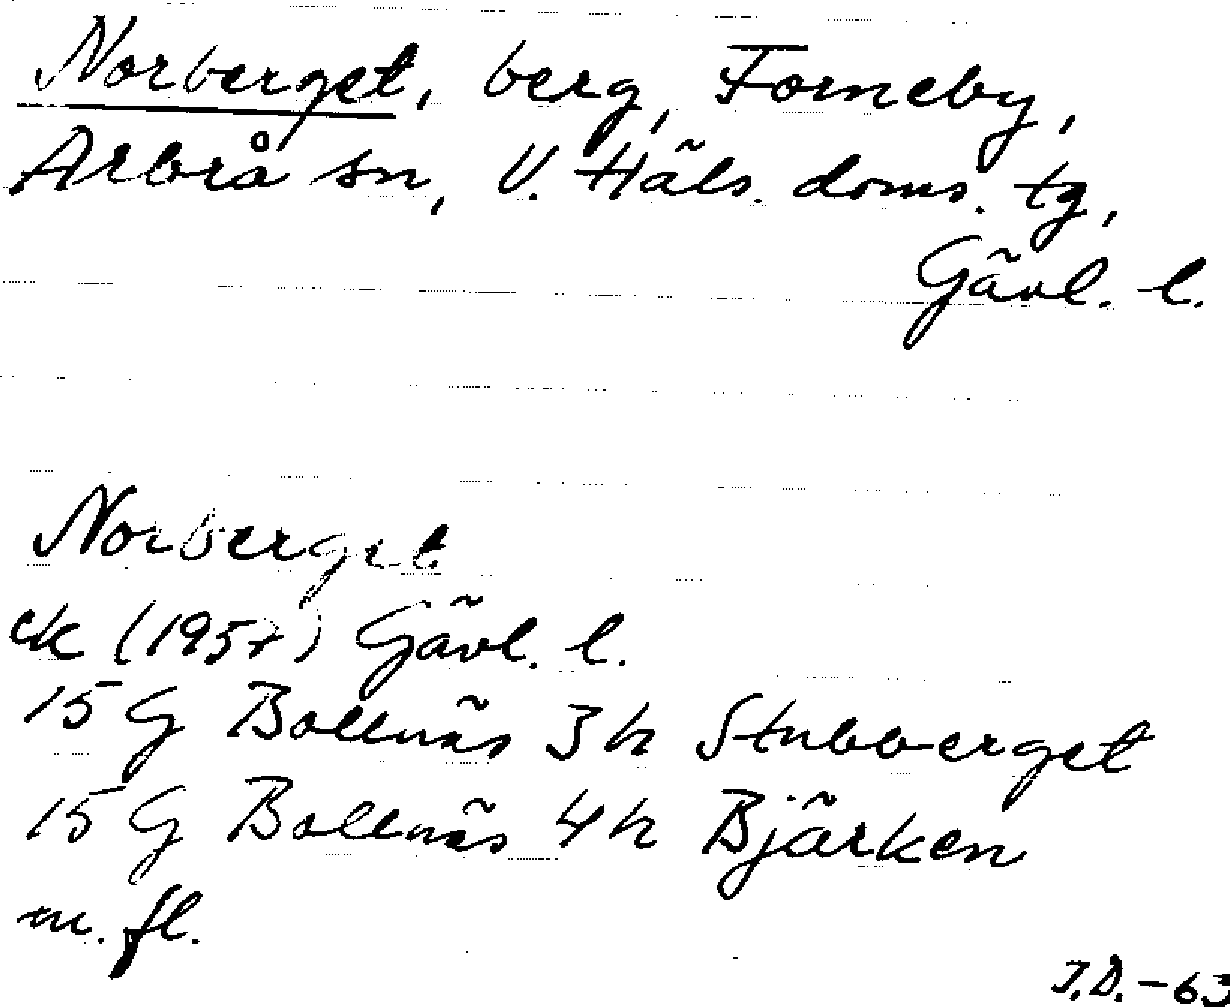 Norberget, berg, Forneby,
Arbrå sn, V. Häls. doms. tg,
Gävl. l.
Norberget
ek (1957) Gävl. l.
15 G Bollnäs 3 h Stubberget
15 G Bollnäs 4 h Bjärken
m. fl.
J.D. -63